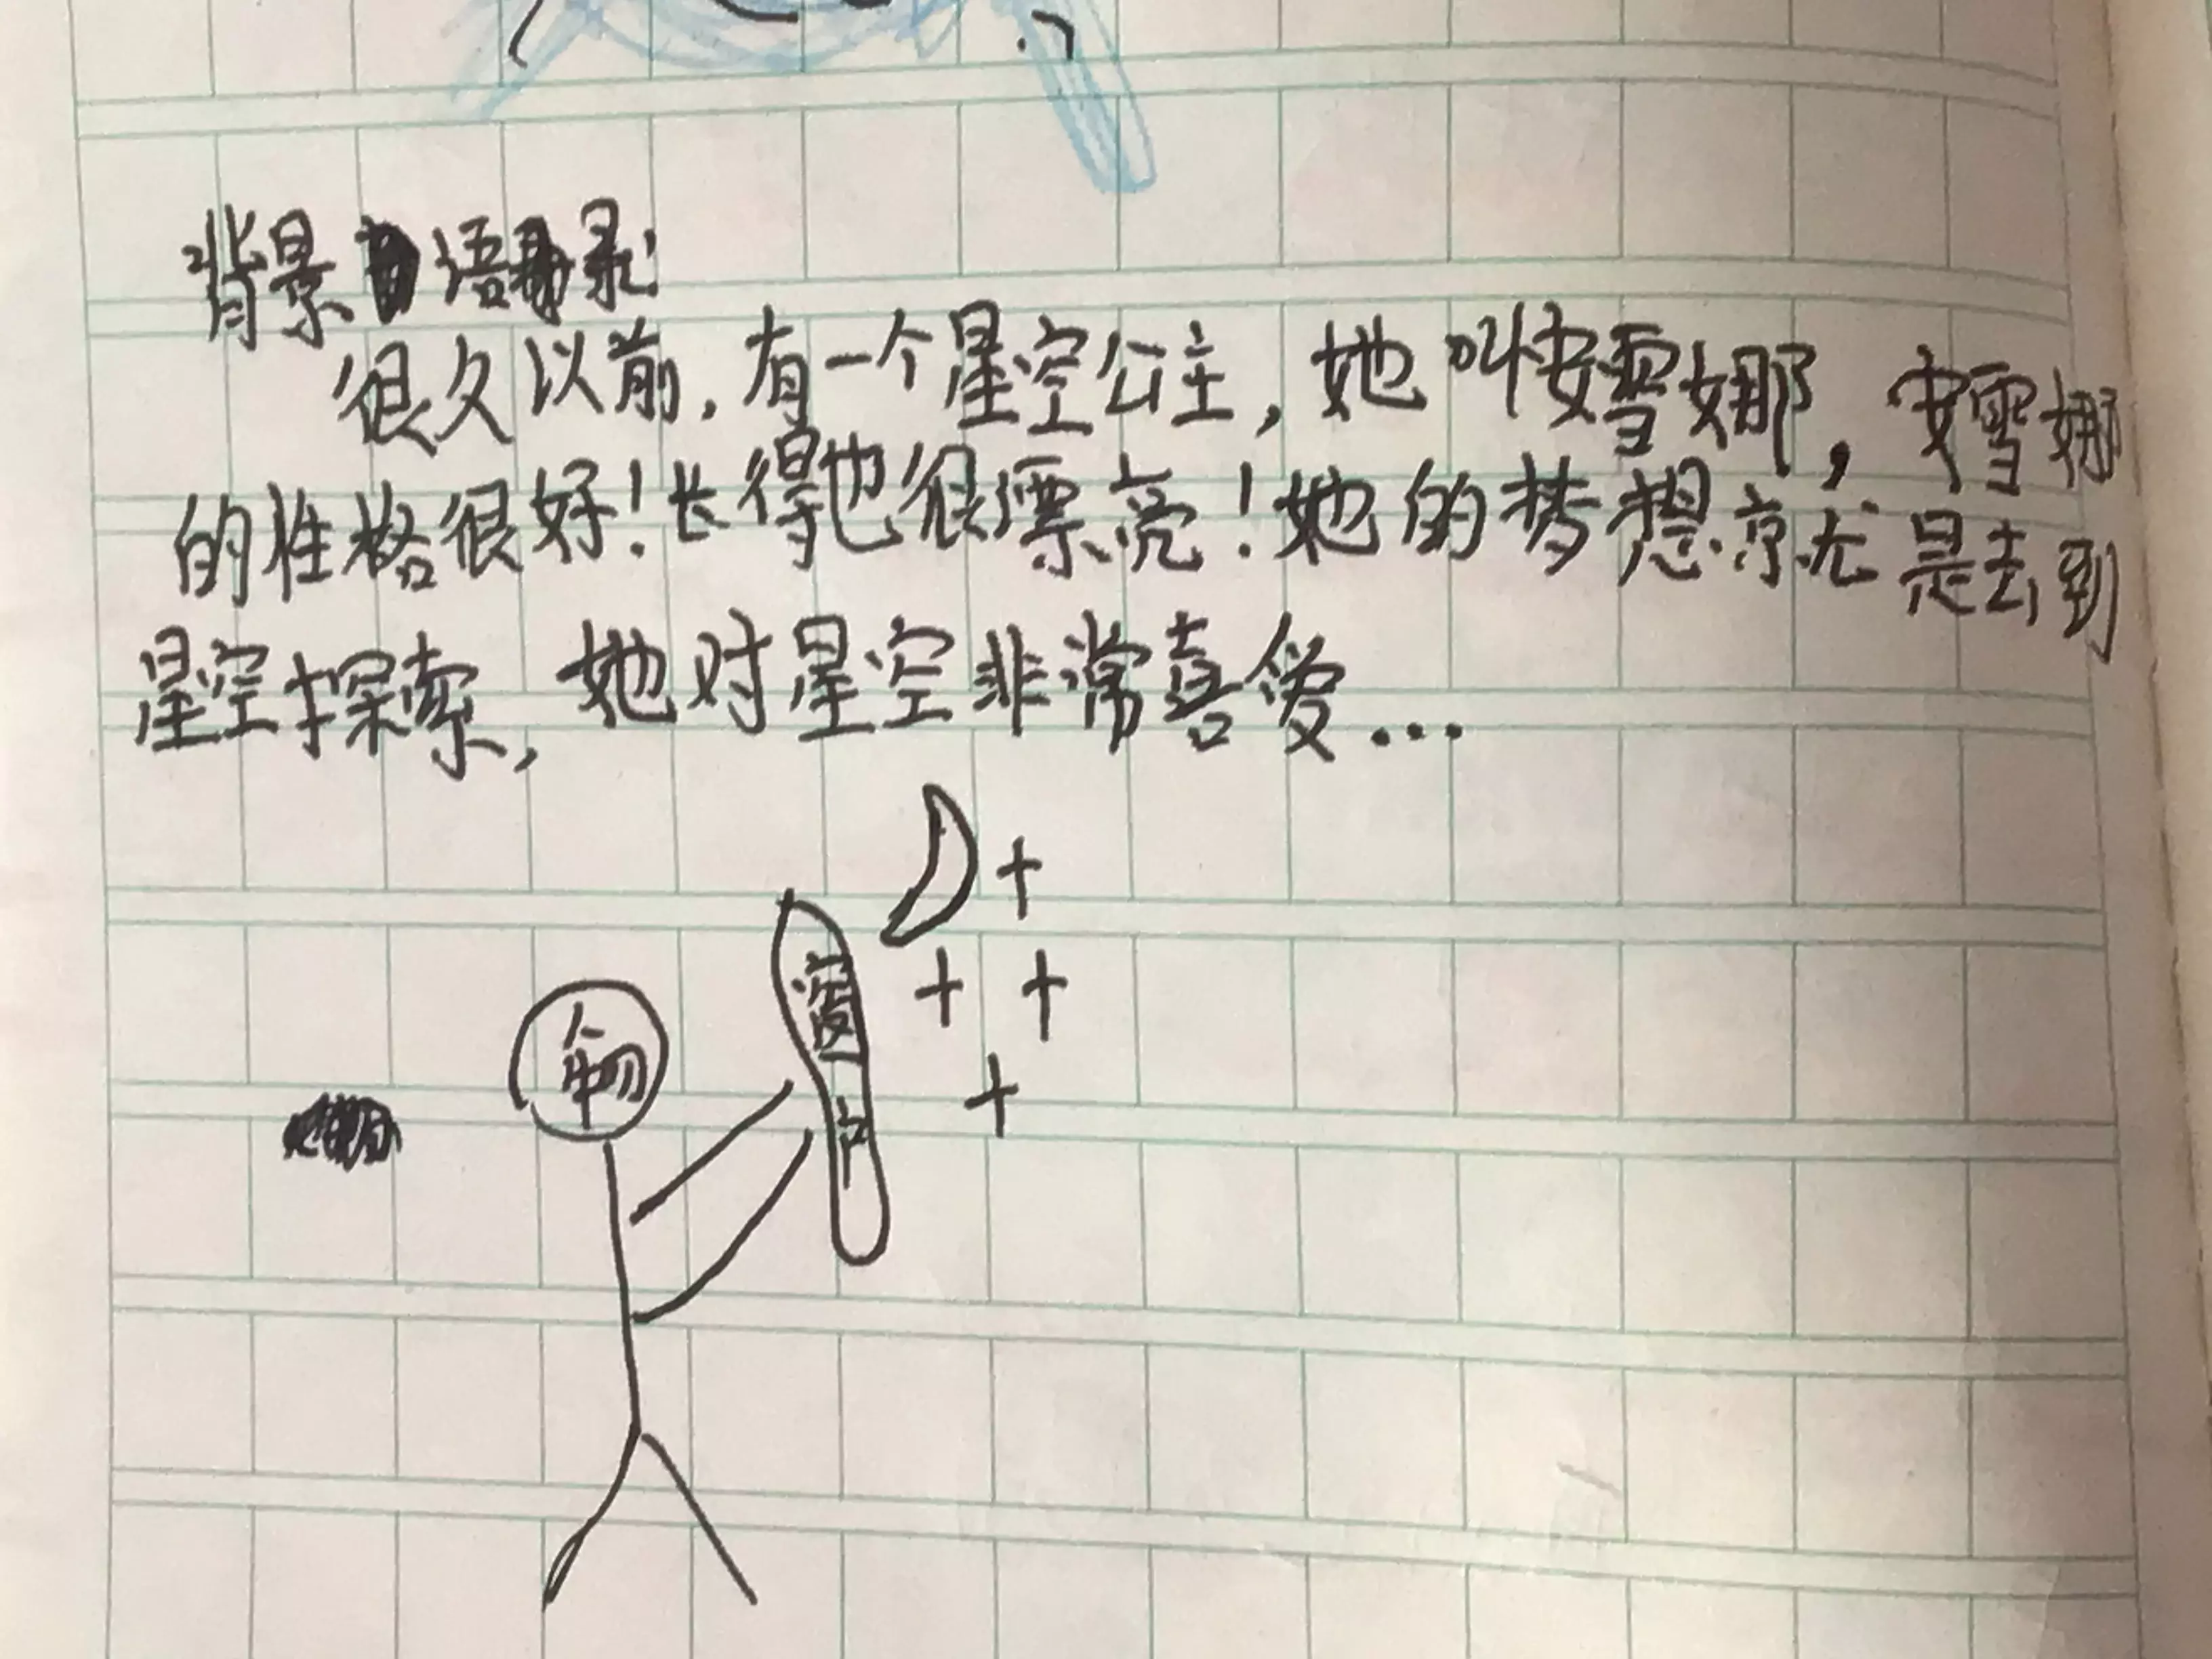 背景语录
很久以前,有一个星空公主,她叫安雪娜,安雪娜
的性格很好!长得也很漂亮!她的梦想就是去到
星空探索,她对星空非常喜爱...
人物
窗户